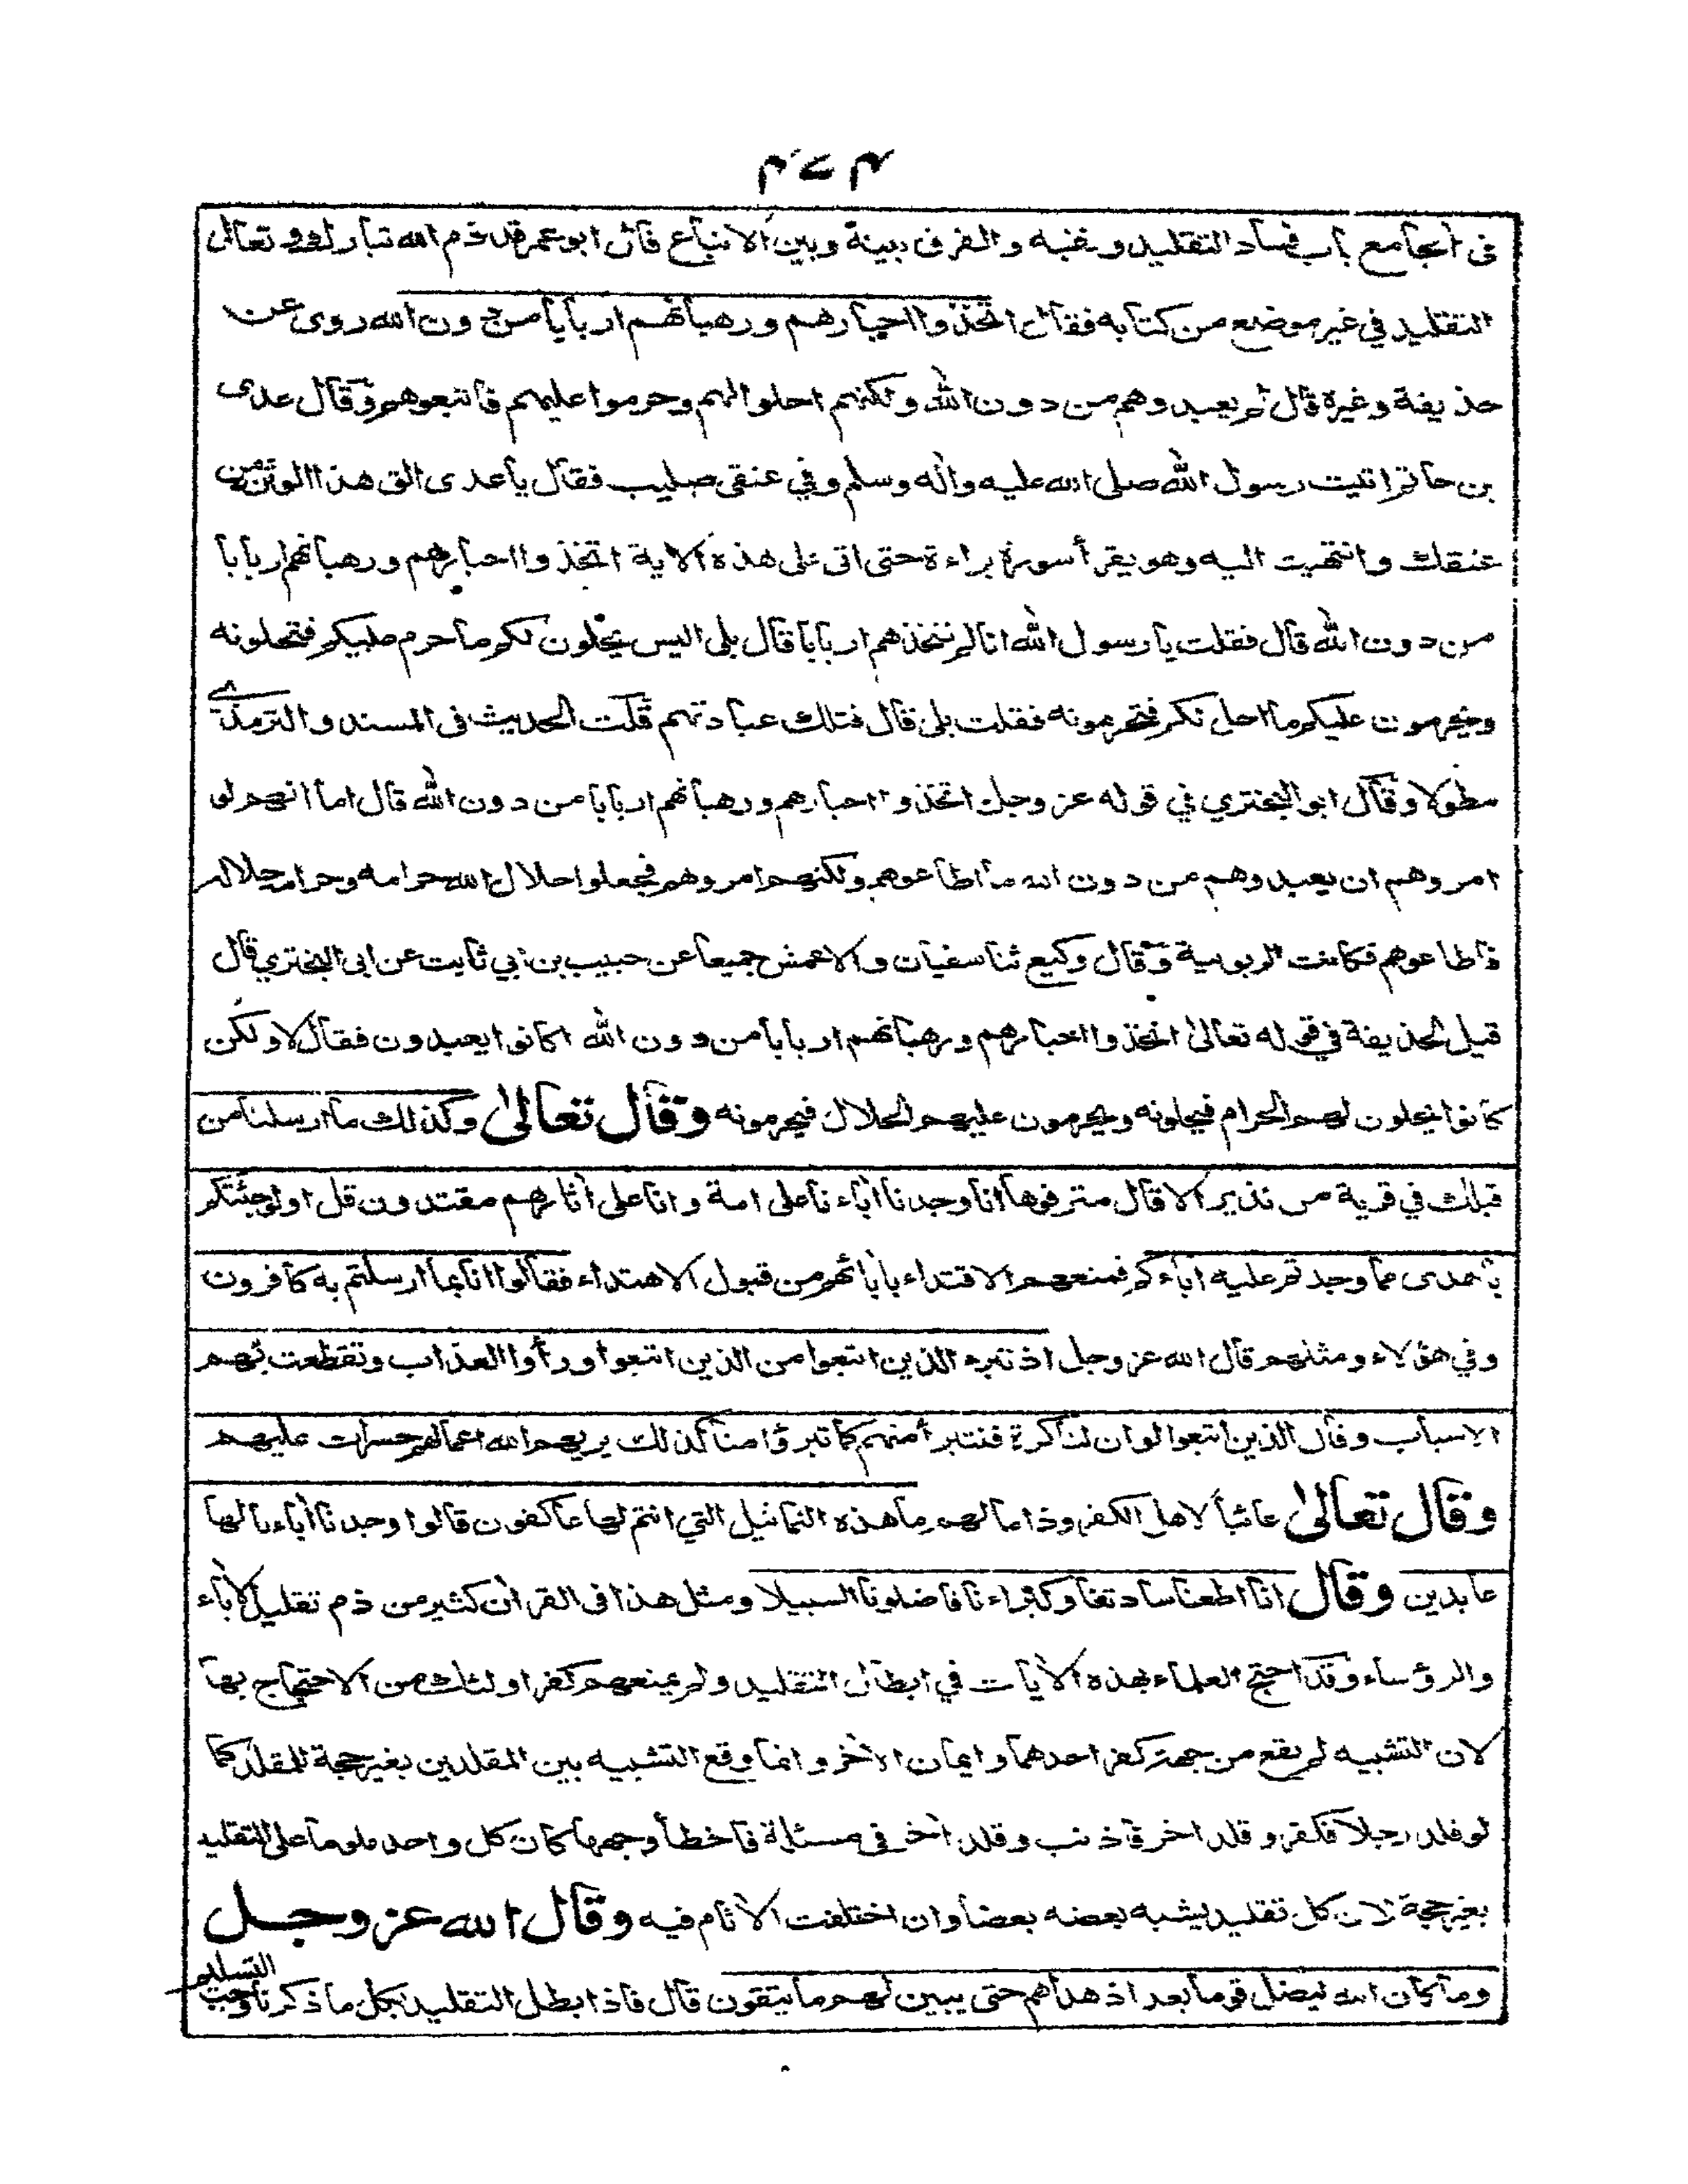 في الجامع باب فساد التقليد ونفيه والفرق بينه وبين الاتباع قال ابو عمر قد ذم الله تبارك وتعالى
التقليد في غير موضع من كتابه فقال اتخذوا احبارهم ورهبانهم اربابا من دون الله روى عن
حذيفة وغيره قال لم يعبدوهم من دون الله ولكنهم احلوا لهم وحرموا عليهم فاتبعوهم وقال عدى
بن حاتم اتيت رسول الله صلى الله عليه وآله وسلم وفي عنقي صليب فقال يا عدى الق هذا الوثن من
عنقك وانتهيت اليه وهو يقرأ سورة براءة حتى اتى على هذه الاية اتخذوا احبارهم ورهبانهم اربابا
من دون الله قال فقلت يا رسول الله انا لم نتخذهم اربابا قال بلى اليس يحلون لكم ما حرم عليكم فتحلونه
ويحرمون عليكم ما احل لكم فتحرمونه فقلت بلى قال فتلك عبادتهم قلت الحديث في المسند والترمذي
مطولا وقال ابو البختري في قوله عز وجل اتخذوا احبارهم ورهبانهم اربابا من دون الله قال اما انهم لو
امروهم ان يعبدوهم من دون الله ما اطاعوهم ولكنهم امروهم فجعلوا حلال الله حرامه وحرامه حلاله
فاطاعوهم فكانت الربوبية وقال وكيع ثنا سفيان والاعمش جميعا عن حبيب بن ابي ثابت عن ابي البختري قال
قيل لحذيفة في قوله تعالى اتخذوا احبارهم ورهبانهم اربابا من دون الله اكانوا يعبدون فقال لا ولكن
كانوا يحلون لهم الحرام فيحلونه ويحرمون عليهم الحلال فيحرمونه وقال تعالى وكذلك ما ارسلنا من
قبلك في قرية من نذير الا قال مترفوها انا وجدنا آباءنا على امة وانا على آثارهم مقتدون قل اولو جئتكم
باهدى مما وجدتم عليه اباءكم فمنعهم الاقتداء بابائهم من قبول الاهتداء فقالوا انا بما ارسلتم به كافرون
وفي هؤلاء ومثلهم قال الله عز وجل اذ تبرء الذين اتبعوا من الذين اتبعوا ورأوا العذاب وتقطعت بهم
الاسباب وقال الذين اتبعوا لو ان لنا كرة فنتبرأ منهم كما تبرؤا منا كذلك يريهم الله اعمالهم حسرات عليهم
وقال تعالى عائبا لاهل الكفر وذاما لهم ما هذه التماثيل التي انتم لها عاكفون قالوا وجدنا آباءنا لها
عابدين وقال انا اطعنا سادتنا وكبراءنا فاضلونا السبيلا ومثل هذا في القرآن كثير من ذم تقليد الآباء
والرؤساء وقد احتج العلماء بهذه الآيات في ابطال التقليد ولم يمنعهم كفر اولئك من الاحتجاج بها
لان التشبيه لم يقع من جهة كفر احدهما وايمان الآخر وانما وقع التشبيه بين المقلدين بغير حجة للمقلد كما
لو قلد رجلا فكفر وقلد اخر فاذنب وقلد آخر في مسئلة فاخطأ وجهها كان كل واحد ملوما على التقليد
بغير حجة لان كل تقليد يشبه بعضه بعضا وان اختلفت الآثام فيه وقال الله عز وجل
وما كان الله ليضل قوما بعد اذ هداهم حتى يبين لهم ما يتقون قال فاذا بطل التقليد بكل ما ذكرنا وجب
التسليم